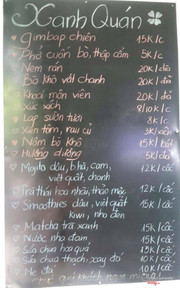 Xanh Quán
Gimbap chiên 15k/c
Phở cuốn bò, thập cẩm 5k/c
Nem rán 20k/đĩa
Bò khô vắt chanh 20k/đĩa
Khoai môn viên 20k/đ
Xúc xách 8/10k/c
Lạp sườn tươi 8k/c
Nộm bò khô 15k/bát
Hướng dương 5k/đ
Mojito dâu, 12k/cốc
việt quất, chanh
Trà thái hoa nhài, thảo mộc 12k/cốc
Smoothies dâu, việt quất 15k/cốc
kiwi, nho đen
Matcha trà xanh 15k/cốc
Nước nho đam 15k/cốc
Sữa chua hoa quả 15k/cốc
Sữa chua thạch, xay đá 10k/cốc
10k/cốc